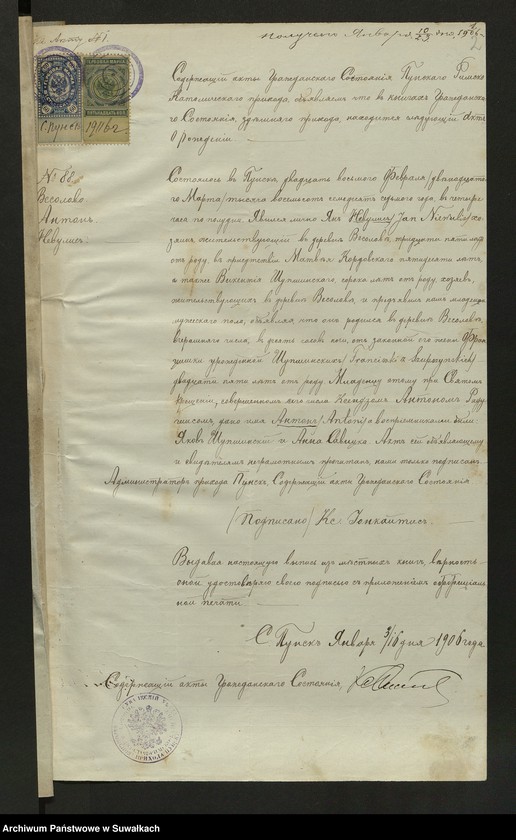 Акту №1.
получено Января 10/23 дня, 1906
С. Пунскъ 1906 г
Содержащій акты Гражданскаго Состоянія Пунскаго Римско
Католическаго прихода, объявляетъ что въ книгахъ Гражданска-
го Состоянія, здѣшняго прихода, находится слѣдующій актъ
О рожденіи
№ 88.
Веселово
Антонъ
Невулисъ.
Состоялось въ Пунскѣ, двадцать восьмого Февраля /двѣнадцата-
го Марта/ тысяча восемьсотъ семьдесятъ седьмого года, въ четыре
часа по полудни. Явился лично Янъ Невулисъ /Jan
зяинъ жительствующій въ деревнѣ Веселовѣ, тридцать пять лѣтъ
отъ роду, въ присутствіи Матвѣя Кордовскаго пятидесяти лѣтъ,
а также Викентія Шупшинскаго, сорока лѣтъ отъ роду, хозяевъ,
жительствующихъ въ деревнѣ Веселовѣ, и предъявилъ намъ младенца
мужескаго пола, объявляя, что онъ родился въ деревнѣ Веселовѣ,
вчерашняго числа, въ десять часовъ ночи, отъ законной его жены Фран-
цишки урожденной Шупшинскихъ /Franciszki z
двадцати пяти лѣтъ отъ роду. Младенцу этому при Святомъ
Крещеніи, совершенномъ сего числа Ксендзомъ Антономъ
дано имя Антонъ /Antoni/ а воспріемниками были
Яковъ Шупшинскій и Анна Савицко. Актъ сей объявляющему
и свидѣтелямъ неграмотнымъ прочитанъ, нами только подписанъ.
Администраторъ прихода Пунскъ, Содержащій акты Гражданскаго Состоянія
/Подписано/ Кс. Іонкайтисъ.
Выдавая настоящую выпись изъ мѣстныхъ книгъ, вѣрность
оной удостовѣряю своею подписью съ приложеніемъ оффиціаль-
ной печати.
С. Пунскъ Января 3/16 дня 1906 года
Содержащій акты Гражданскаго Состоянія,
Archiwum Państwowe w Suwałkach